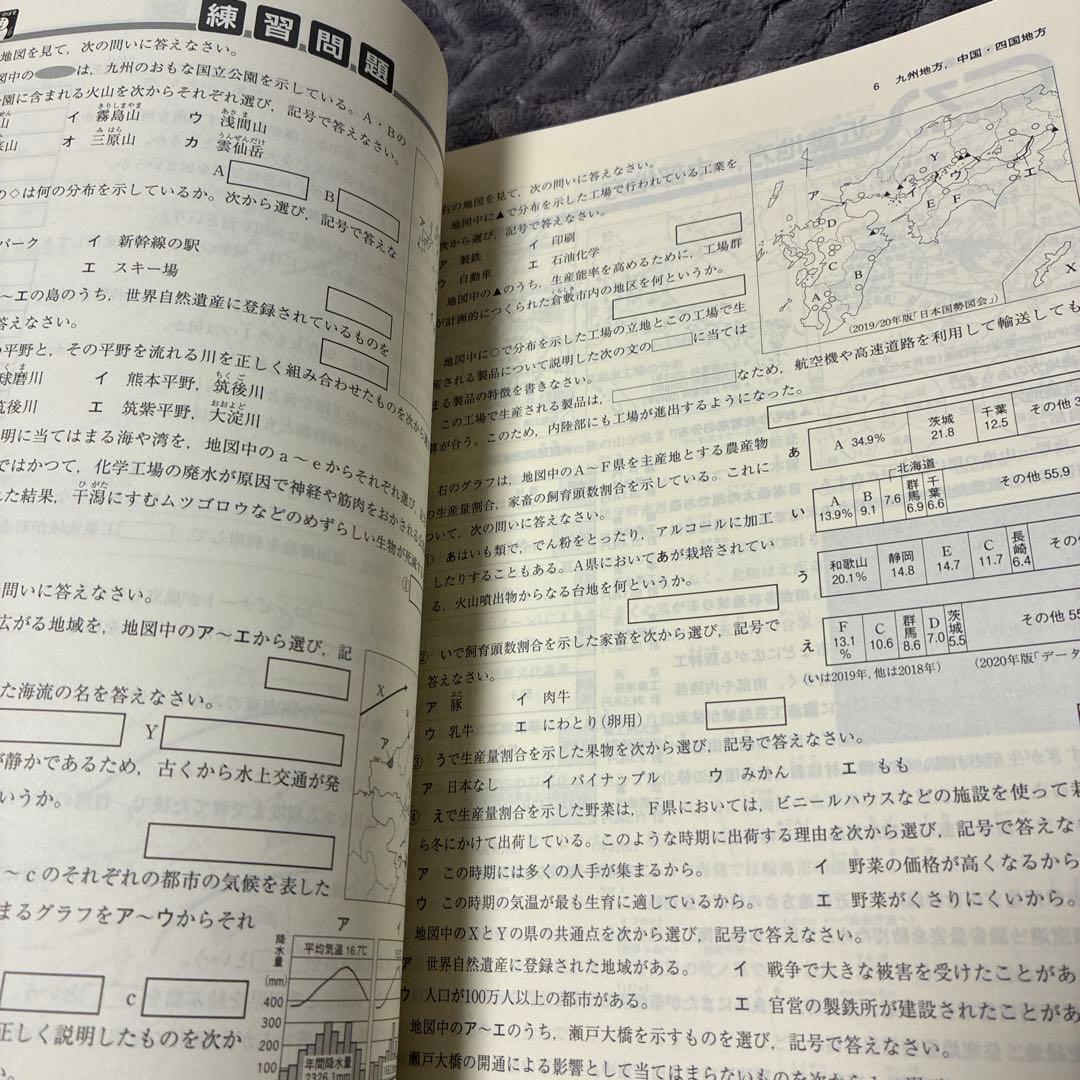 練習問題
地図を見て，次の問いに答えなさい。
図中の は，九州のおもな国立公園を示している。A・Bの
園に含まれる火山を次からそれぞれ選び，記号で答えなさい。
山 イ 霧島山 ウ 浅間山
山 オ 三原山 カ 雲仙岳
A B
の◇は何の分布を示しているか。次から選び，記号で答えな
パーク イ 新幹線の駅
エ スキー場
～エの島のうち，世界自然遺産に登録されているものを
答えなさい。
の平野と，その平野を流れる川を正しく組み合わせたものを次から
球磨川 イ 熊本平野，筑後川
筑後川 エ 筑紫平野，大淀川
明に当てはまる海や湾を，地図中のa～eからそれぞれ選び，
ではかつて，化学工場の廃水が原因で神経や筋肉をおかされる
れた結果，干潟にすむムツゴロウなどのめずらしい生物が死滅
問いに答えなさい。
広がる地域を，地図中のア～エから選び，記
た海流の名を答えなさい。
Y
が静かであるため，古くから水上交通が発
いうか。
～cのそれぞれの都市の気候を表した
まるグラフをア～ウからそれ
c
正しく説明したものを次か
い。
X
ア
降水量
(mm)
平均気温 16.7℃
400
300
200
100
年間降水量
2326.1mm
6 九州地方，中国・四国地方
右の地図を見て，次の問いに答えなさい。
地図中に▲で分布を示した工場で行われている工業を
次から選び，記号で答えなさい。
ア 製鉄 イ 印刷
ウ 自動車 エ 石油化学
地図中の▲のうち，生産能率を高めるために，工場群
が計画的につくられた倉敷市内の地区を何というか。
地図中に○で分布を示した工場の立地とこの工場で生
産される製品について説明した次の文の に当ては
まる製品の特徴を書きなさい。
この工場で生産される製品は， なため，航空機や高速道路を利用して輸送しても
算が合う。このため，内陸部にも工場が進出するようになった。
(2019/20年版「日本国勢図会」)
右のグラフは，地図中のA～F県を主産地とする農産物
の生産量割合，家畜の飼育頭数割合を示している。これに
ついて，次の問いに答えなさい。
① あはいも類で，でん粉をとったり，アルコールに加工
したりすることもある。A県においてあが栽培されてい
る，火山噴出物からなる台地を何というか。
② いで飼育頭数割合を示した家畜を次から選び，記号で
答えなさい。
ア 豚 イ 肉牛
ウ 乳牛 エ にわとり(卵用)
③ うで生産量割合を示した果物を次から選び，記号で答えなさい。
ア 日本なし イ パイナップル ウ みかん エ もも
④ えで生産量割合を示した野菜は，F県においては，ビニールハウスなどの施設を使って栽
ら冬にかけて出荷している。このような時期に出荷する理由を次から選び，記号で答えな
ア この時期には多くの人手が集まるから。 イ 野菜の価格が高くなるから
ウ この時期の気温が最も生育に適しているから。 エ 野菜がくさりにくいから。
地図中のXとYの県の共通点を次から選び，記号で答えなさい。
ア 世界自然遺産に登録された地域がある。 イ 戦争で大きな被害を受けたことがあ
ウ 人口が100万人以上の都市がある。 エ 官営の製鉄所が建設されたことがあ
地図中のア～エのうち，瀬戸大橋を示すものを選び，記号で答えなさい。
瀬戸大橋の開通による影響として当てはまらないものを次から
あ A 34.9% 茨城 21.8 千葉 12.5 その他
い A 13.9% B 9.1 北海道 7.6 群馬 6.9 千葉 6.6 その他 55.9
う 和歌山 20.1% 静岡 14.8 E 14.7 C 11.7 長崎 6.4 その
え F 13.1% C 10.6 群馬 8.6 D 7.0 茨城 5.5 その他 55
(いは2019年，他は2018年) (2020年版「データ